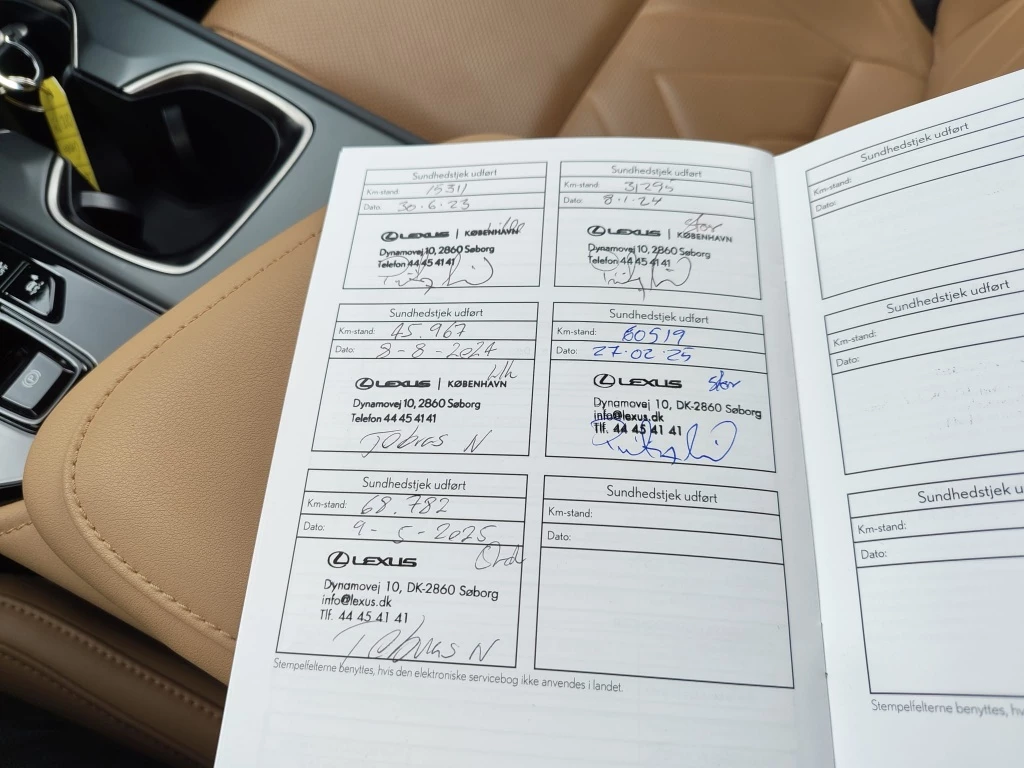 Sundhedstjek udført
Km-stand: 15311
Dato: 30.6.23
LEXUS | KØBENHAVN
Dynamovej 10, 2860 Søborg
Telefon 44 45 41 41
Sundhedstjek udført
Km-stand: 31295
Dato: 8.1.24
stor
LEXUS | KØBENHAVN
Dynamovej 10, 2860 Søborg
Telefon 44 45 41 41
Sundhedstjek udført
Km-stand: 45 967
Dato: 8-8-2024
LEXUS | KØBENHAVN
Dynamovej 10, 2860 Søborg
Telefon 44 45 41 41
Tobias N
Sundhedstjek udført
Km-stand: 60519
Dato: 27.02.25
LEXUS stor
Dynamovej 10, DK-2860 Søborg
info@lexus.dk
Tlf. 44 45 41 41
Sundhedstjek udført
Km-stand: 68.782
Dato: 9-5-2025
LEXUS
Dynamovej 10, DK-2860 Søborg
info@lexus.dk
Tlf. 44 45 41 41
Tobias N
Sundhedstjek udført
Km-stand:
Dato:
Stempelfelterne benyttes, hvis den elektroniske servicebog ikke anvendes i landet.
Sundhedstjek udført
Km-stand:
Dato:
Sundhedstjek udført
Km-stand:
Dato:
Sundhedstjek u
Km-stand:
Dato:
Stempelfelterne benyttes, hv